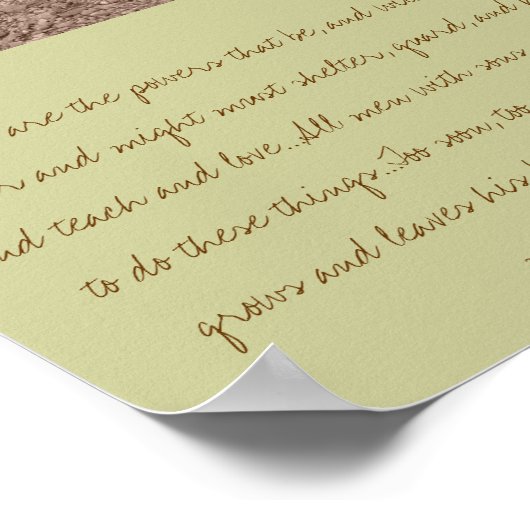 are the powers that be, and with
and might must shelter, guard, and
teach and love...All men with sons
to do these things...Too soon, too
grows and leaves his